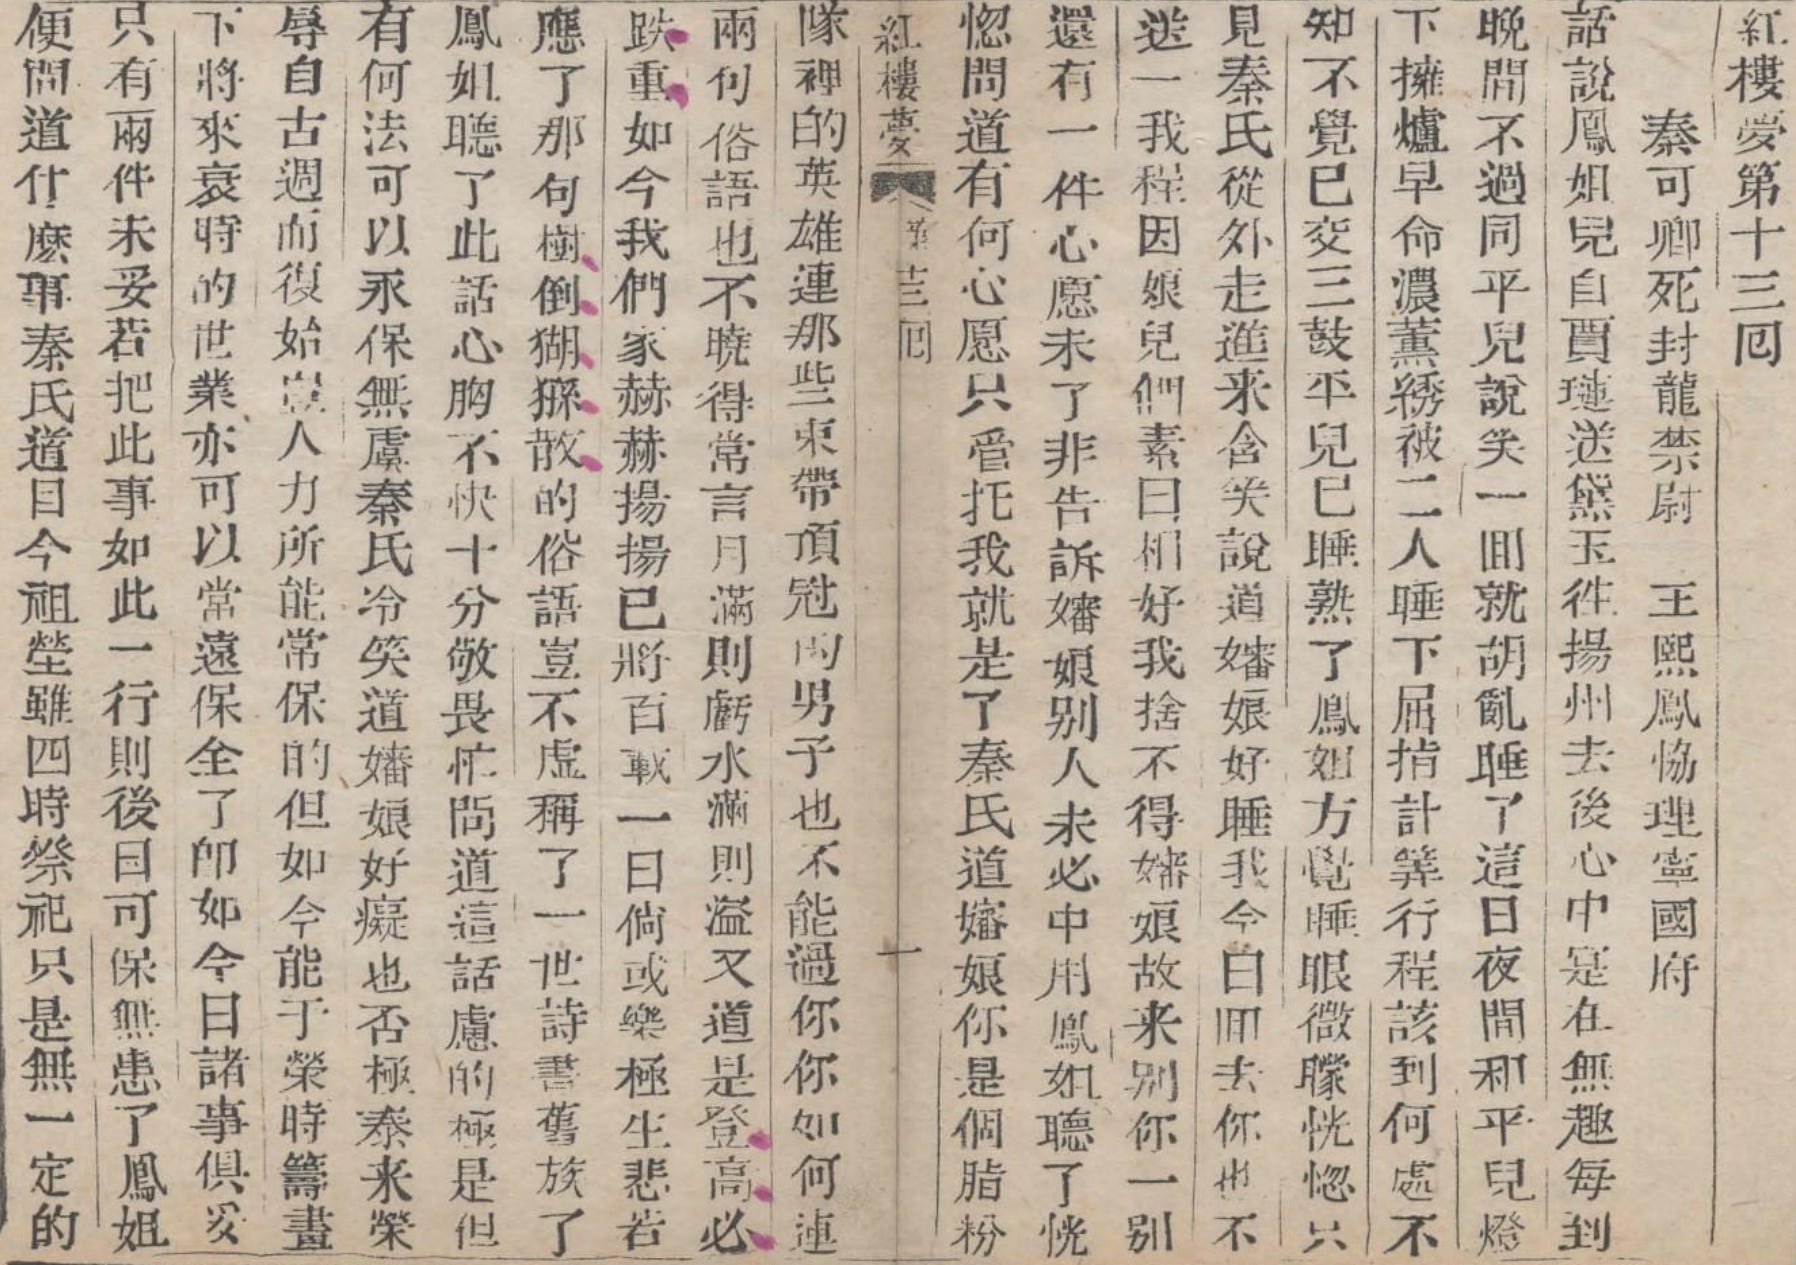 紅樓夢第十三囘
秦可卿死封龍禁尉　王熙鳳協理寧國府
話說鳳姐兒自賈璉送黛玉徃揚州去後心中寔在無趣每到
晚間不過同平兒說笑一囬就胡亂睡了這日夜間和平兒燈
下擁爐早命濃薰綉被二人睡下屈指計筭行程該到何處不
知不覺已交三鼓平兒已睡熟了鳳姐方覺睡眼微矇恍惚只
見秦氏從外走進来含笑說道嬸娘好睡我今日囬去你也不
送一我程因娘兒們素日相好我捨不得嬸娘故来別你一別
還有一件心愿未了非告訴嬸娘别人未必中用鳳姐聽了恍
惚問道有何心愿只管托我就是了秦氏道嬸娘你是個脂粉
紅樓夢　第十三囘　一
隊裡的英雄連那些束帶頂冠的男子也不能過你你如何連
兩句俗語也不曉得常言月滿則虧水滿則溢又道是登高必
跌重如今我們家赫赫揚揚已將百載一日倘或樂極生悲若
應了那句樹倒猢猻散的俗語豈不虛稱了一世詩書舊族了
鳳姐聽了此話心胸不快十分敬畏忙問道這話慮的極是但
有何法可以永保無虞秦氏冷笑道嬸娘好癡也否極泰来榮
辱自古週而復始豈人力所能常保的但如今能于榮時籌畫
下將來衰時的世業亦可以常遠保全了卽如今日諸事俱妥
只有兩件未妥若把此事如此一行則後日可保無患了鳳姐
便問道什麽事秦氏道目今祖塋雖四時祭祀只是無一定的